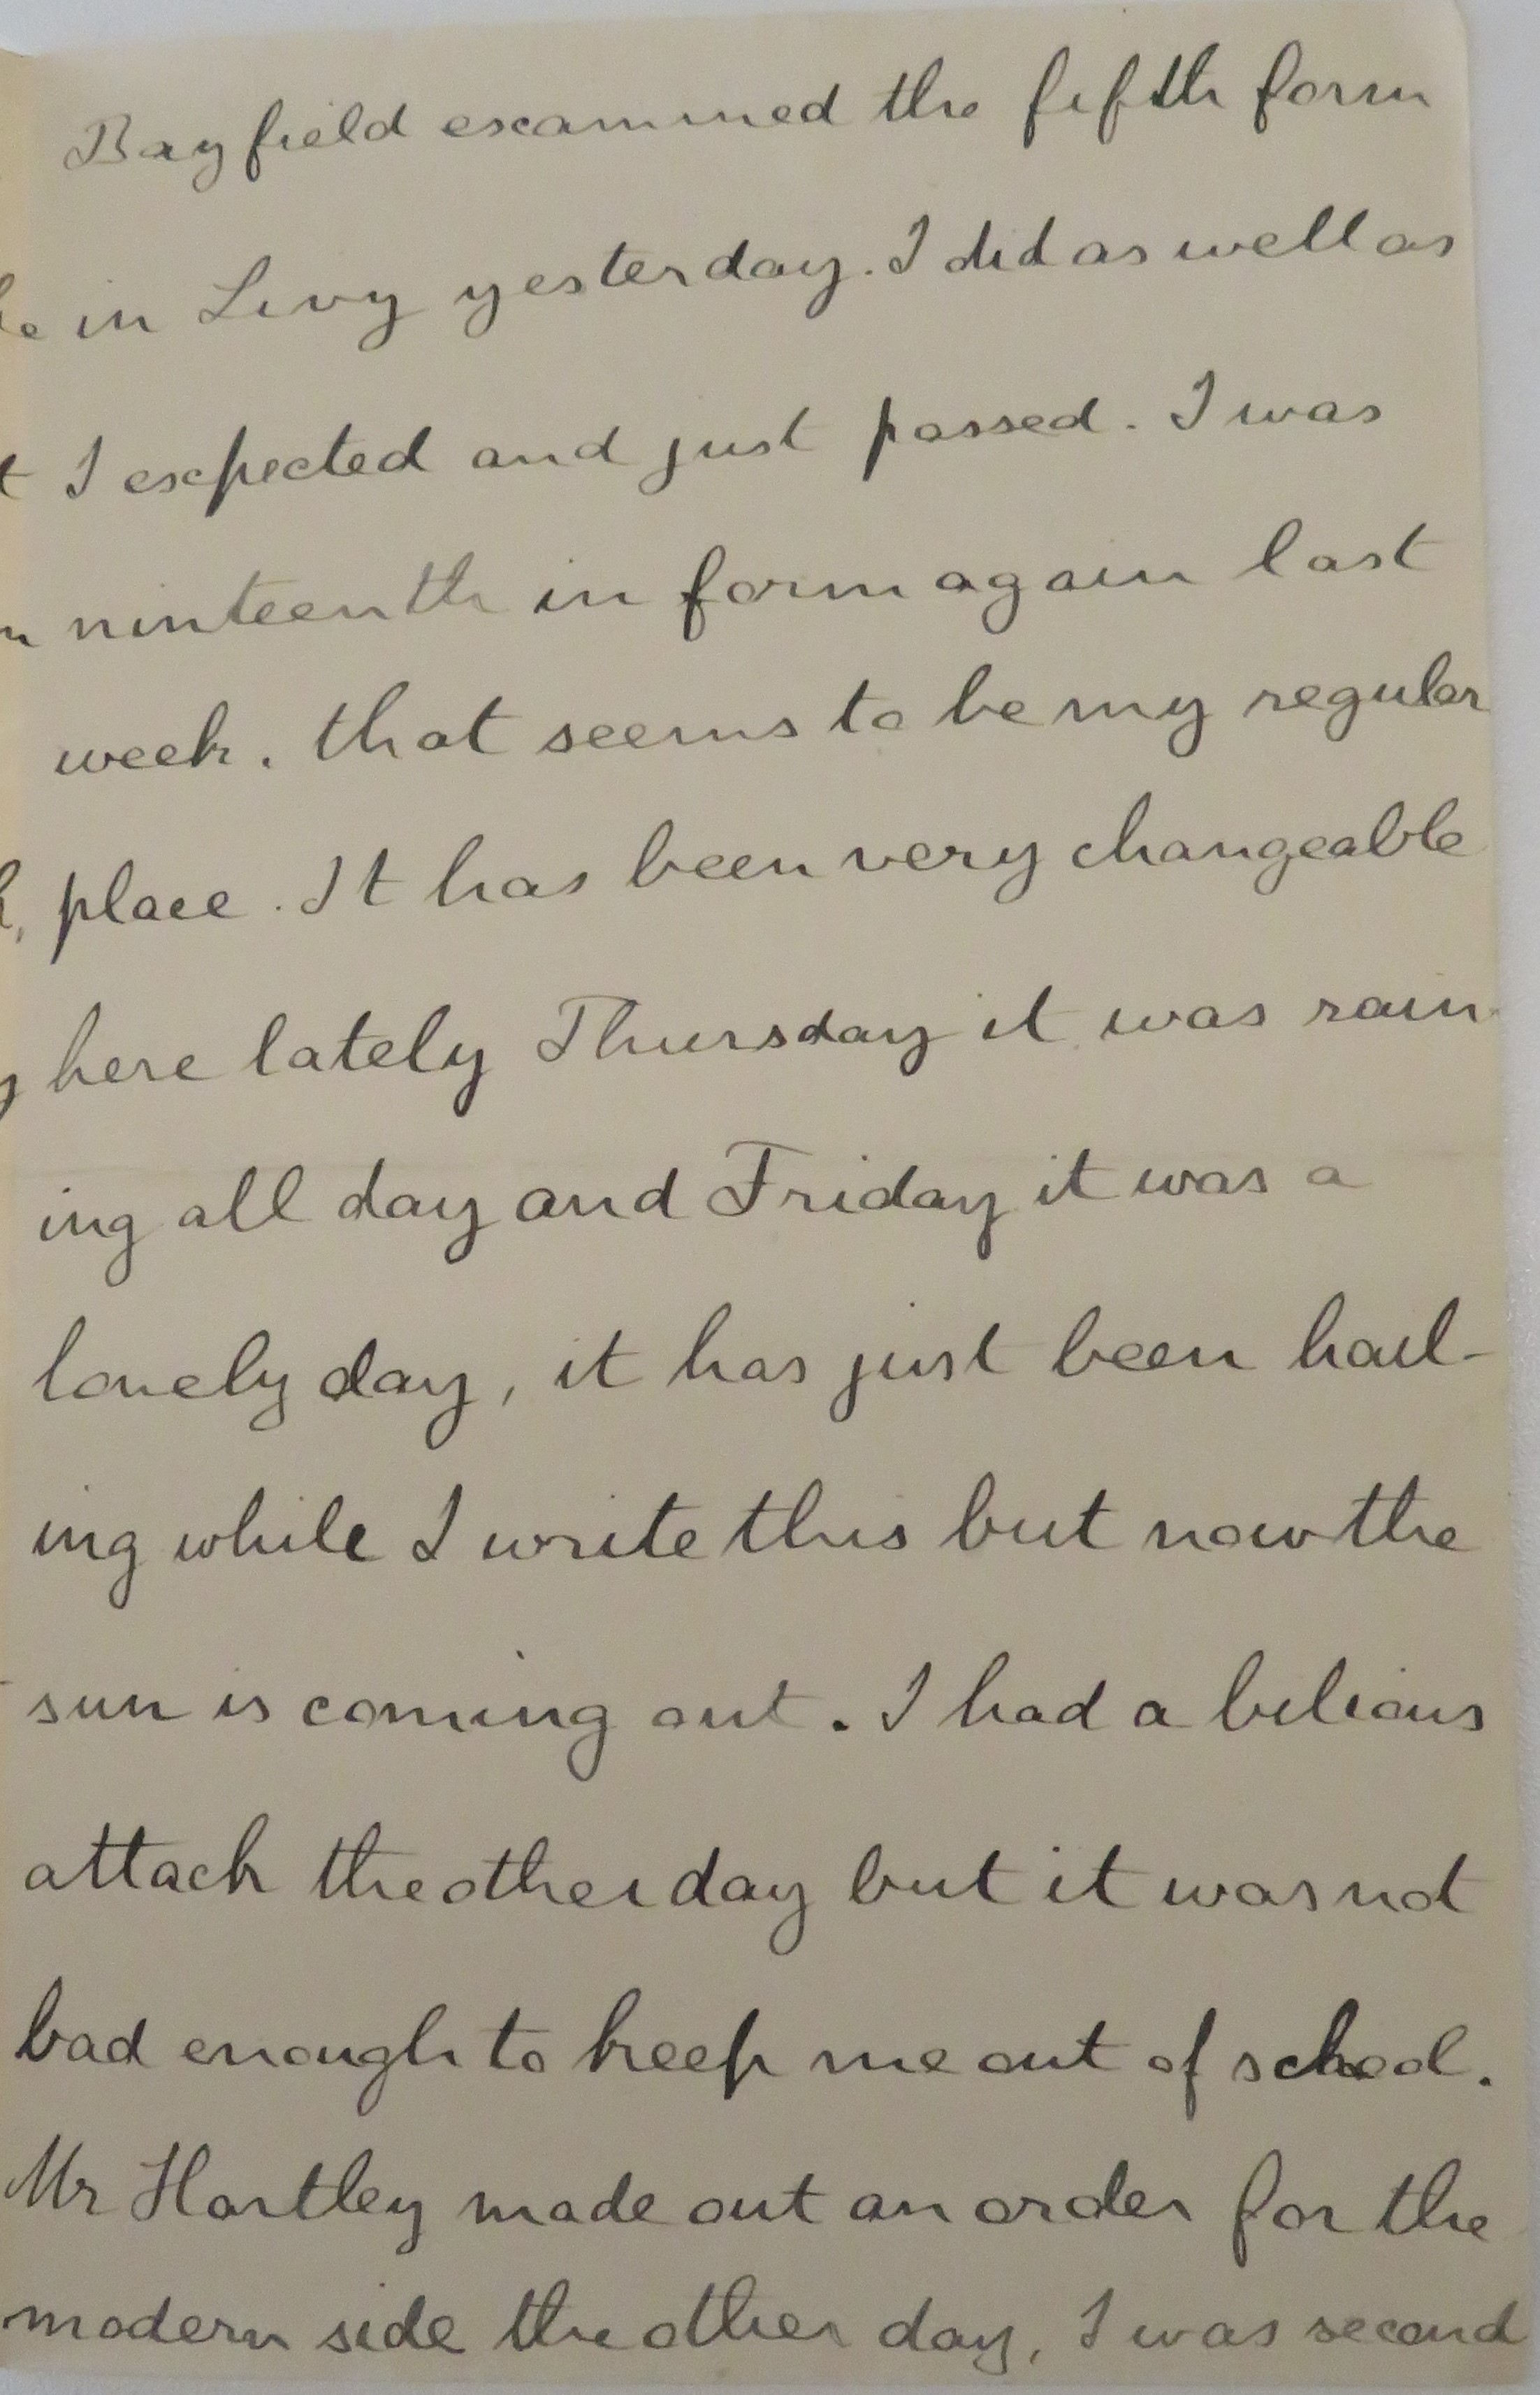 Bayfield examined the fifth form
in Livy yesterday. I did as well as
I expected and just passed. I was
ninteenth in form again last
week. that seems to be my regular
place. It has been very changeable
here lately Thursday it was rain-
ing all day and Friday it was a
lonely day, it has just been hail-
ing while I write this but now the
sun is coming out. I had a bilious
attack the other day but it was not
bad enough to keep me out of school.
Mr Hartley made out an order for the
modern side the other day, I was second